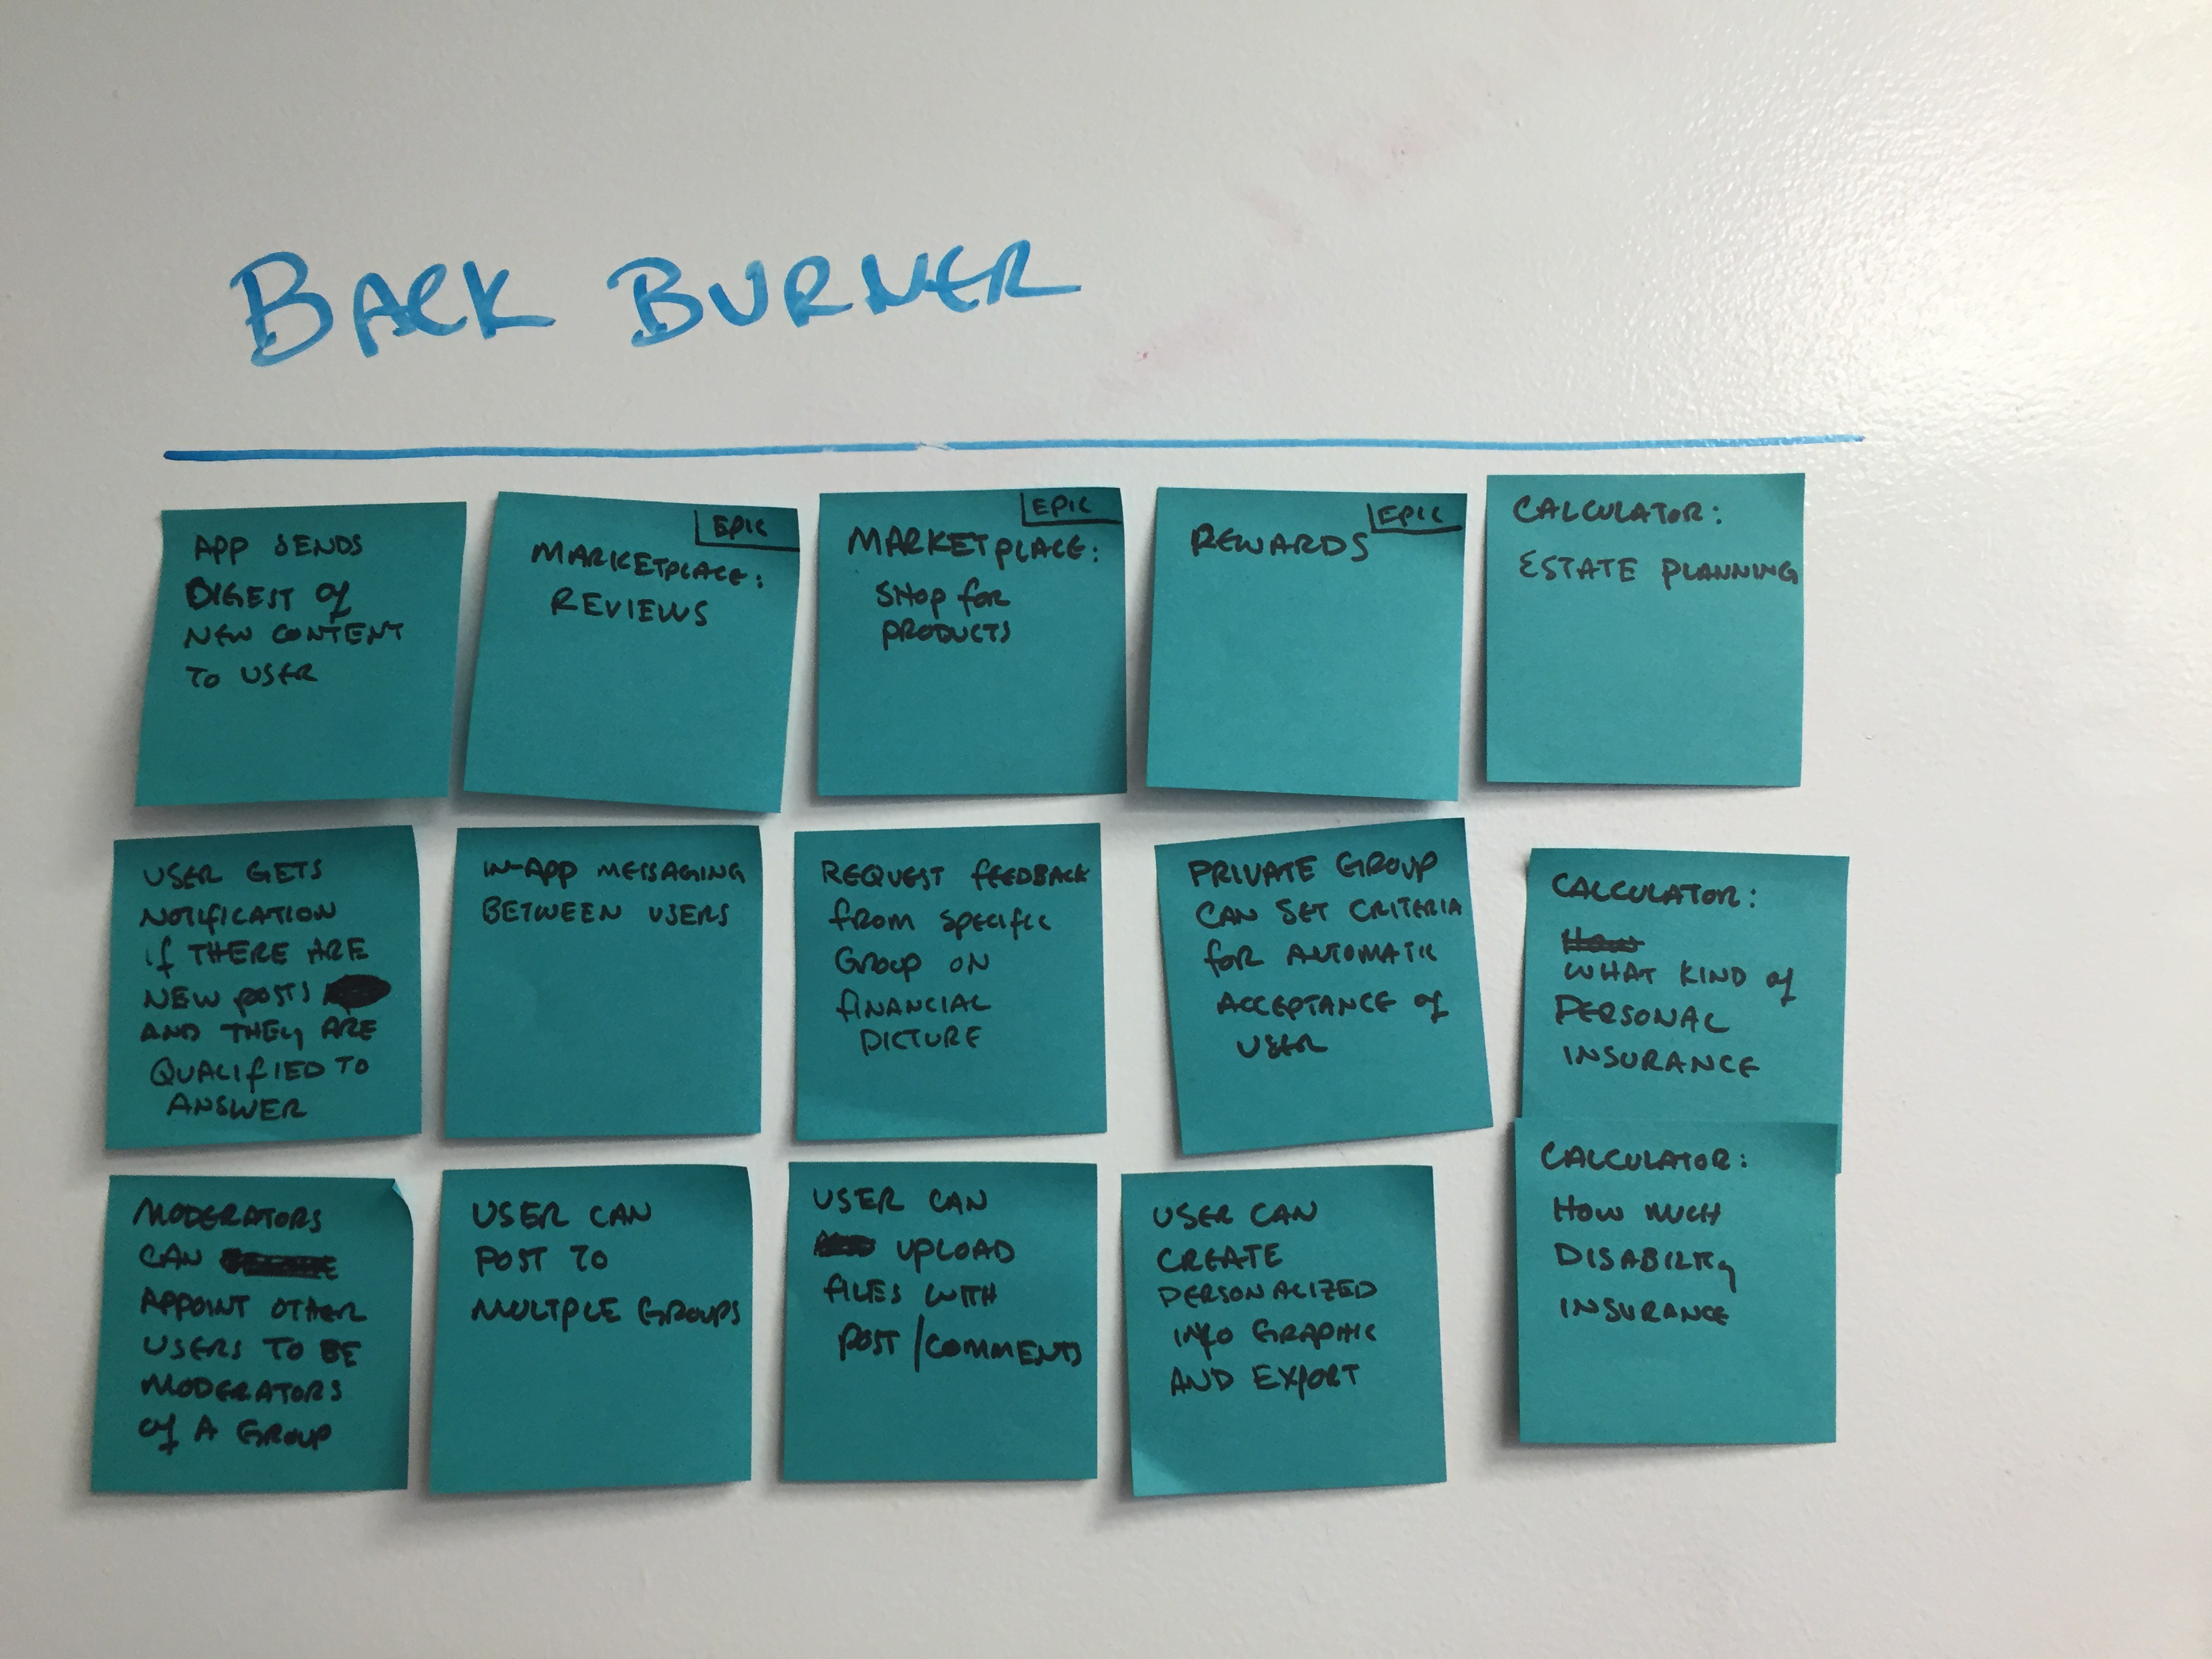 BACK BURNER
APP SENDS
DIGEST OF
NEW CONTENT
TO USER
EPIC
MARKETPLACE:
REVIEWS
EPIC
MARKETPLACE:
SHOP FOR
PRODUCTS
EPIC
REWARDS
CALCULATOR:
ESTATE PLANNING
USER GETS
NOTIFICATION
IF THERE ARE
NEW POSTS
AND THEY ARE
QUALIFIED TO
ANSWER
IN-APP MESSAGING
BETWEEN USERS
REQUEST FEEDBACK
FROM SPECIFIC
GROUP ON
FINANCIAL
PICTURE
PRIVATE GROUP
CAN SET CRITERIA
FOR AUTOMATIC
ACCEPTANCE OF
USER
CALCULATOR:
How
WHAT KIND OF
PERSONAL
INSURANCE
MODERATORS
CAN
APPOINT OTHER
USERS TO BE
MODERATORS
OF A GROUP
USER CAN
POST TO
MULTIPLE GROUPS
USER CAN
UPLOAD
FILES WITH
POST/COMMENTS
USER CAN
CREATE
PERSONALIZED
INFO GRAPHIC
AND EXPORT
CALCULATOR:
HOW MUCH
DISABILITY
INSURANCE